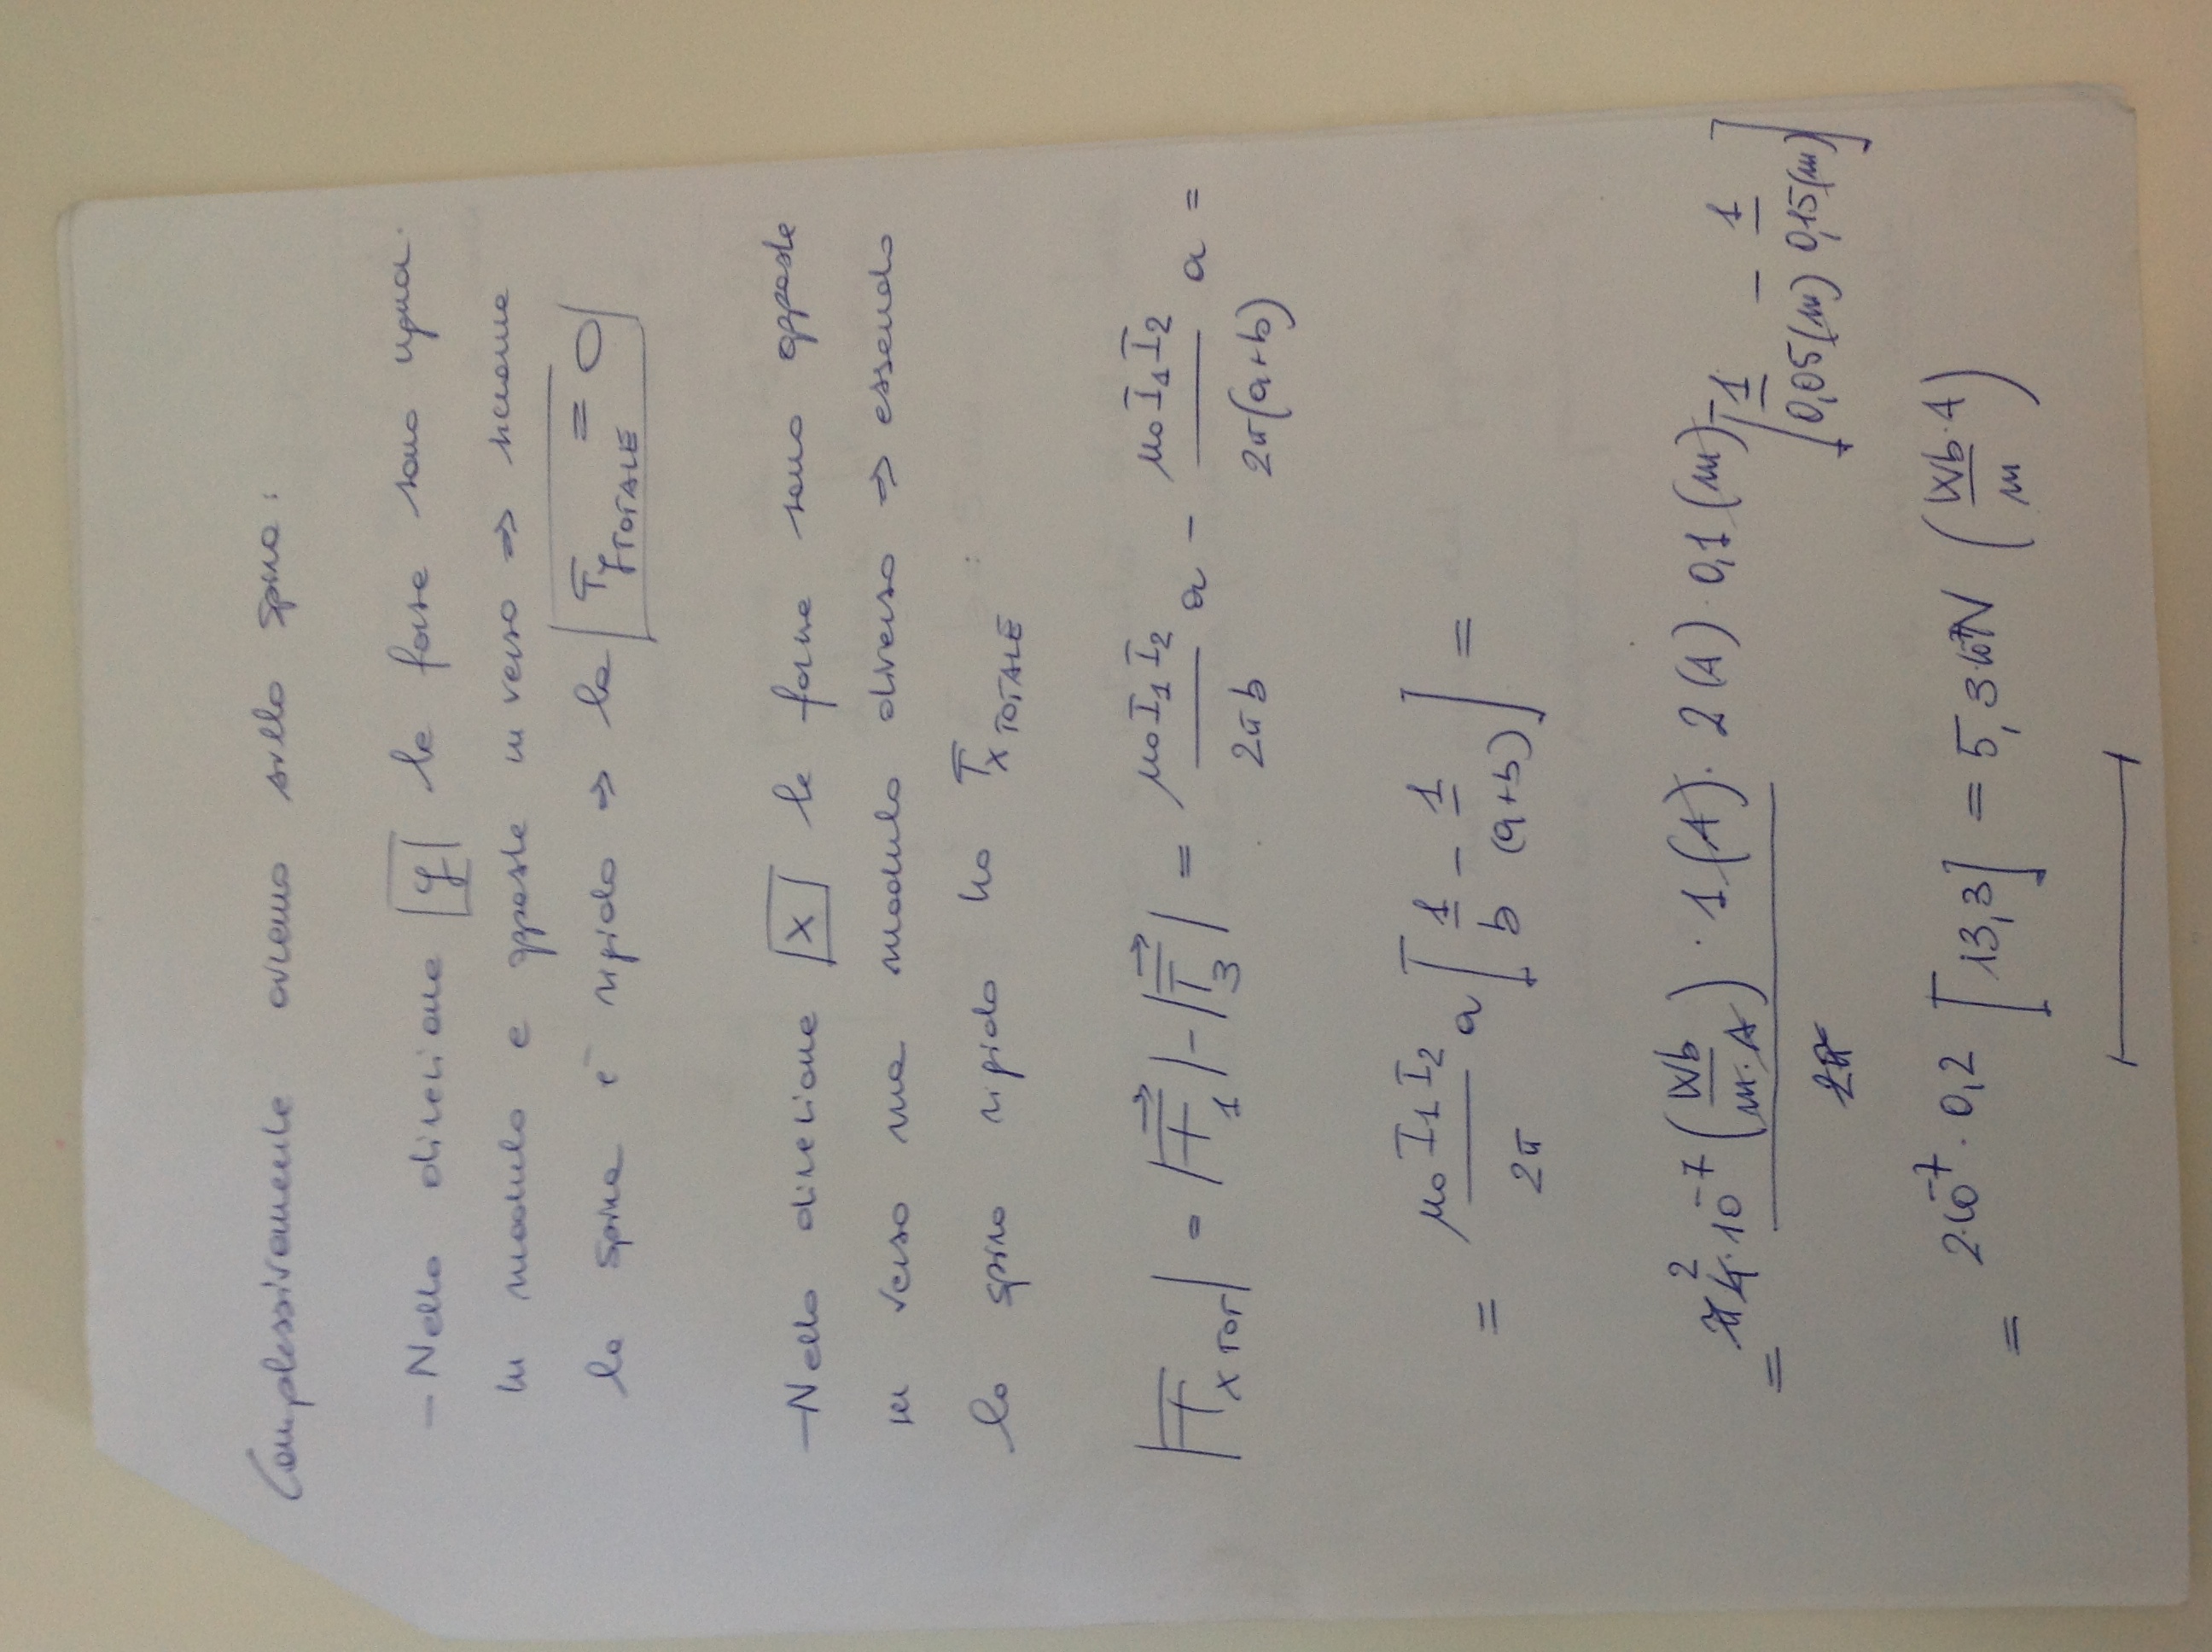 Complessivamente avremo sulla spira:
- Nella direzione y le forze sono ugua.
in modulo e opposte in verso ⇒ siccome
la spira è rigida ⇒ la F_y TOTALE = 0
- Nella direzione x le forze sono opposte
in verso ma modulo diverso ⇒ essendo
la spira rigida ho F_x TOTALE :
|F_x TOT| = |F⃗_1| - |F⃗_3| = μ₀I₁I₂/2πb a - μ₀I₁I₂/2π(a+b) a =
= μ₀I₁I₂/2π a [1/b - 1/(a+b)] =
= π4 2·10⁻⁷ (Wb/m·A) · 1(A) · 2(A) · 0,1(m)/2π [1/0,05(m) - 1/0,15(m)]
= 2·10⁻⁷ · 0,2 [13,3] = 5,3·10⁻⁷N (Wb·A/m)